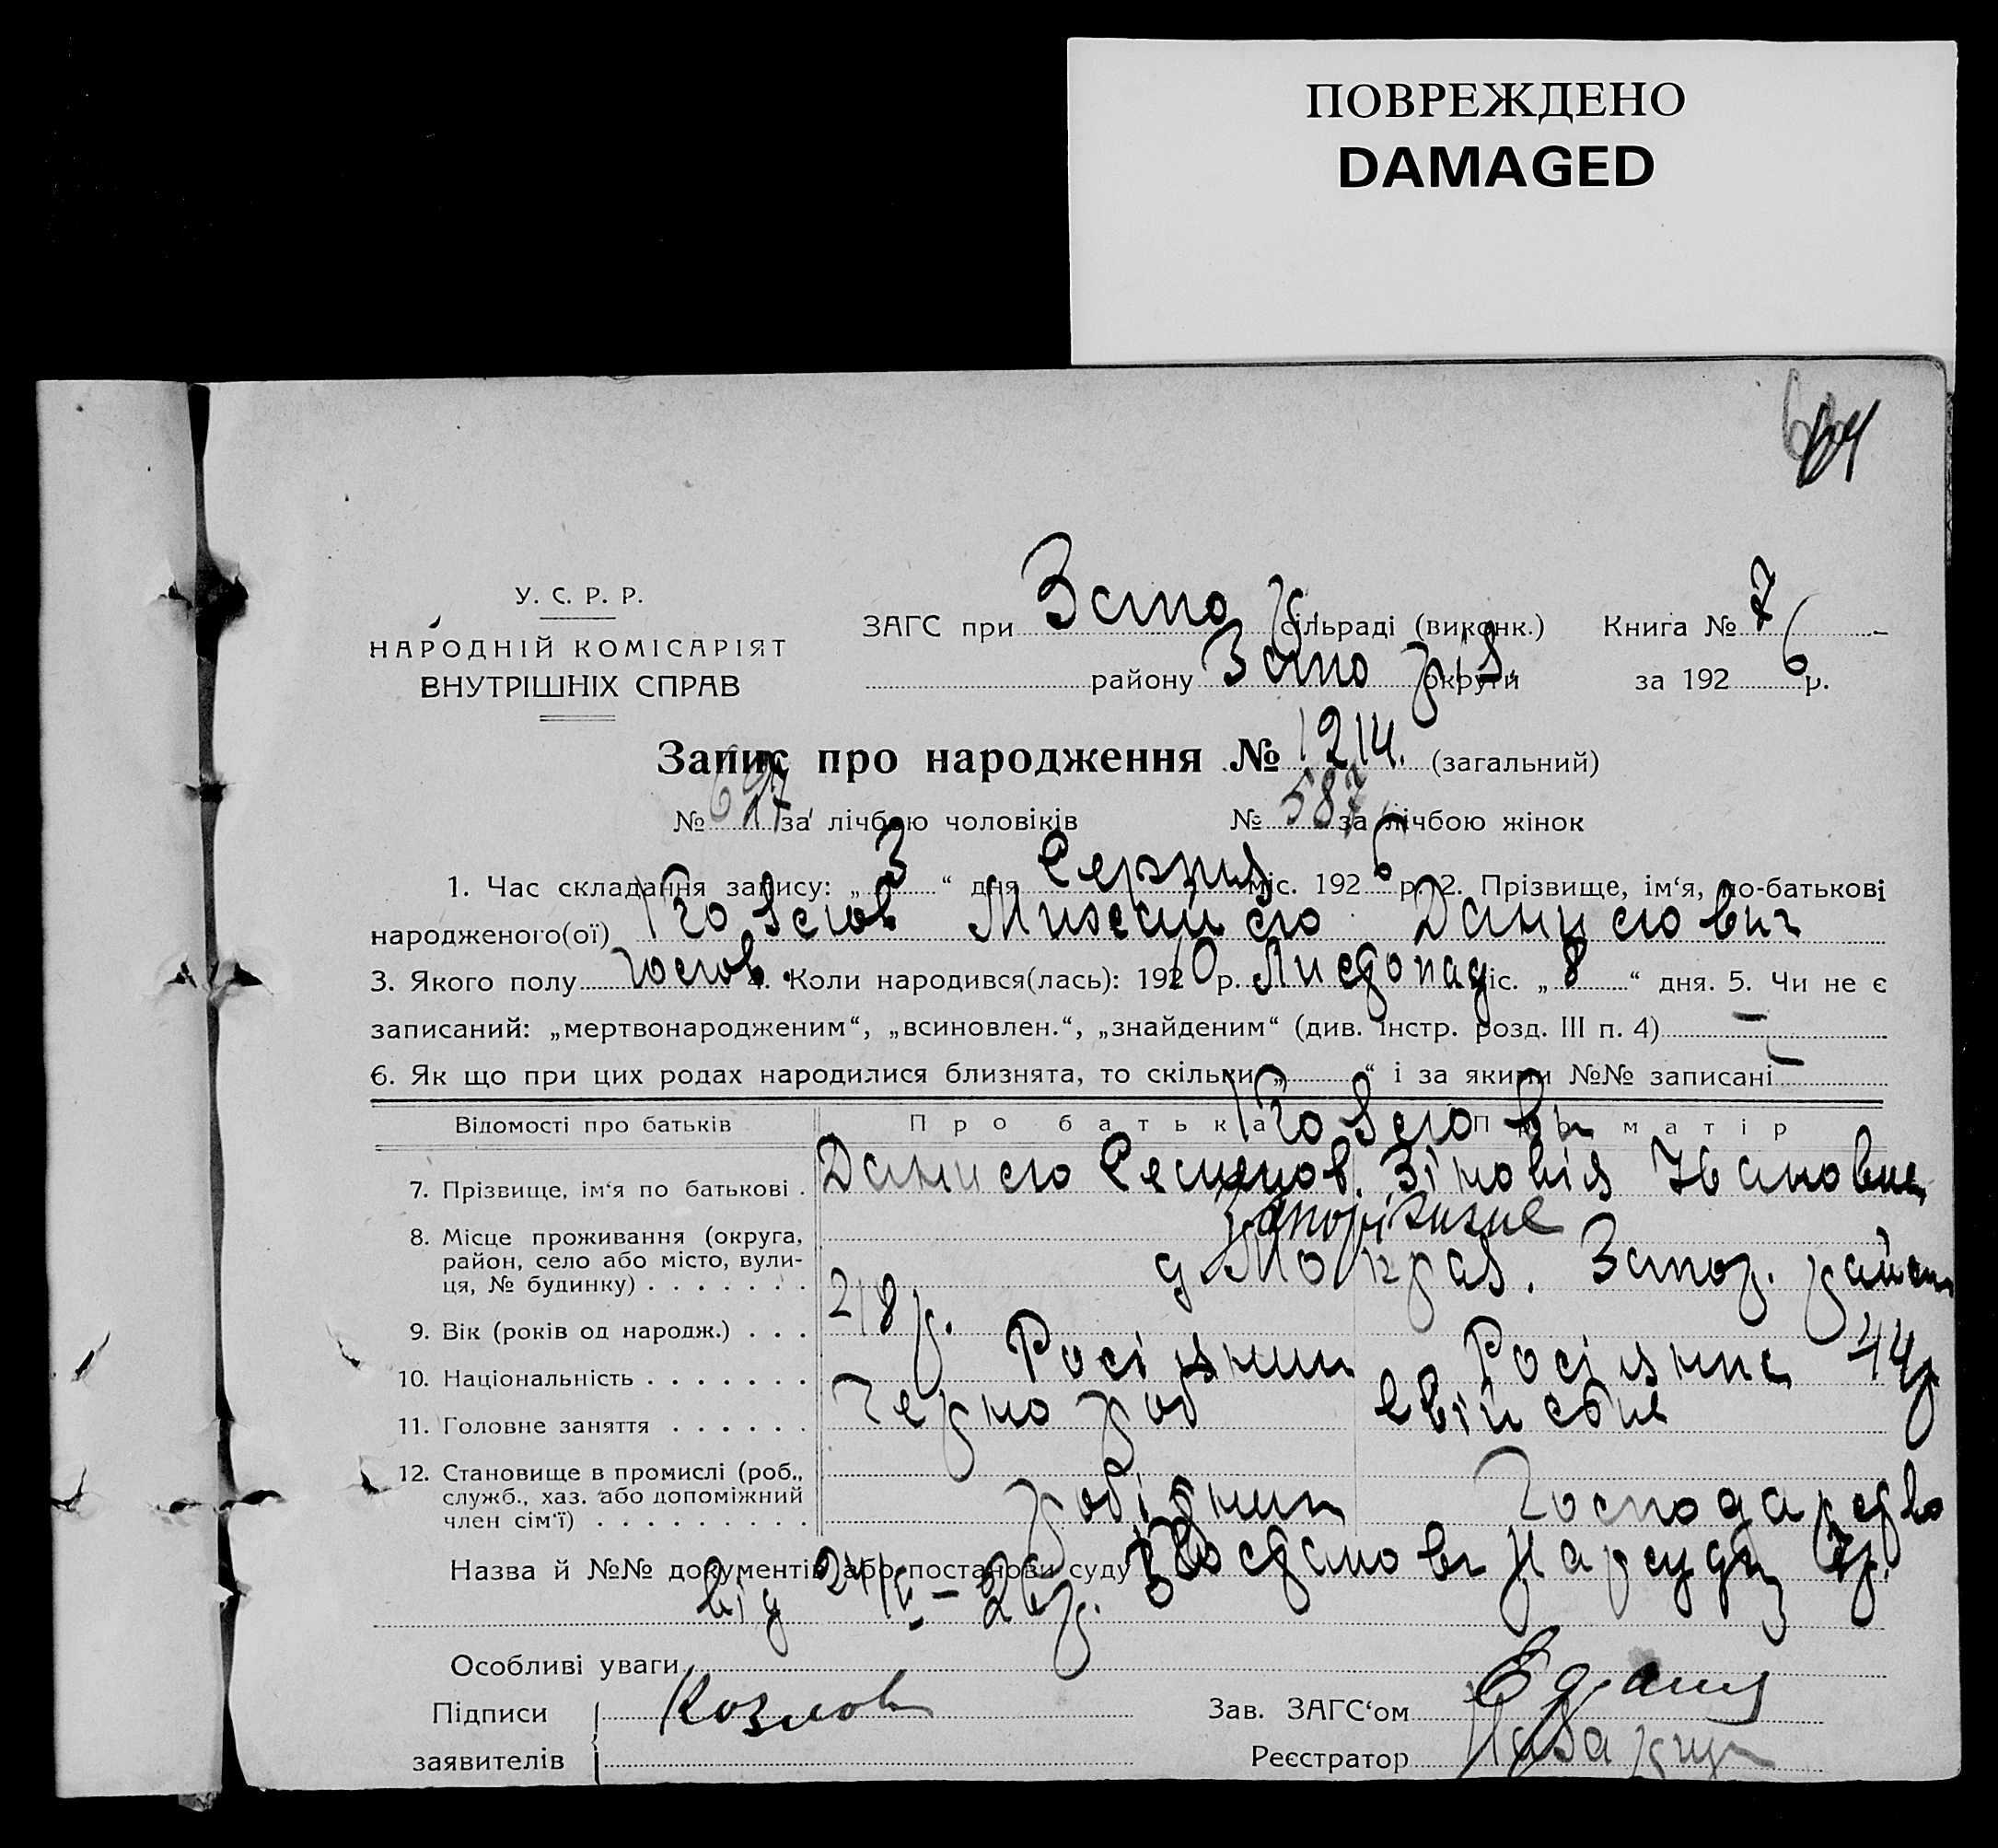 ПОВРЕЖДЕНО
DAMAGED
64
У. С. Р. Р.
НАРОДНІЙ КОМІСАРІЯТ
ВНУТРІШНІХ СПРАВ
ЗАГС при Запо сільраді (виконк.) Книга № 7
району Запоріз. округи за 1926 р.
Запис про народження № 1214. (загальний)
№ 627 за лічбою чоловіків № 587 за лічбою жінок
1. Час складання запису: „3“ дня Серпня міс. 1926 р. 2. Прізвище, ім‘я, по-батькові
народженого(ої) Козлов Михайло Данилович
3. Якого полу чолов. 4. Коли народився(лась): 1920 р. Листопад міс. „8“ дня. 5. Чи не є
записаний: „мертвонародженим“, „всиновлен.“, „знайденим“ (див. інстр. розд. III п. 4) —
6. Як що при цих родах народилися близнята, то скільки „ “ і за якими №№ записані —
Відомості про батьків Про батька Про матір
Козлови
7. Прізвище, ім‘я по батькові . Данило Семенов. Зіновія Івановна
Запоріжжє
8. Місце проживання (округа, район, село або місто, вулиця, № будинку) . . . . . . . Мокрая. Запор. району
9. Вік (років од народж.) . . . 44р
10. Національність . . . . . . . Росіянин Росіянка
11. Головне заняття . . . . . . Чернороб
12. Становище в промислі (роб., служб., хаз. або допоміжний член сім‘ї) . . . . . . . . . робітник Господарство
Назва й №№ документів або постанови суду Постанова Нарсуду
від 26р.
Особливі уваги
Підписи заявителів Козлов
Зав. ЗАГС‘ом
Реєстратор